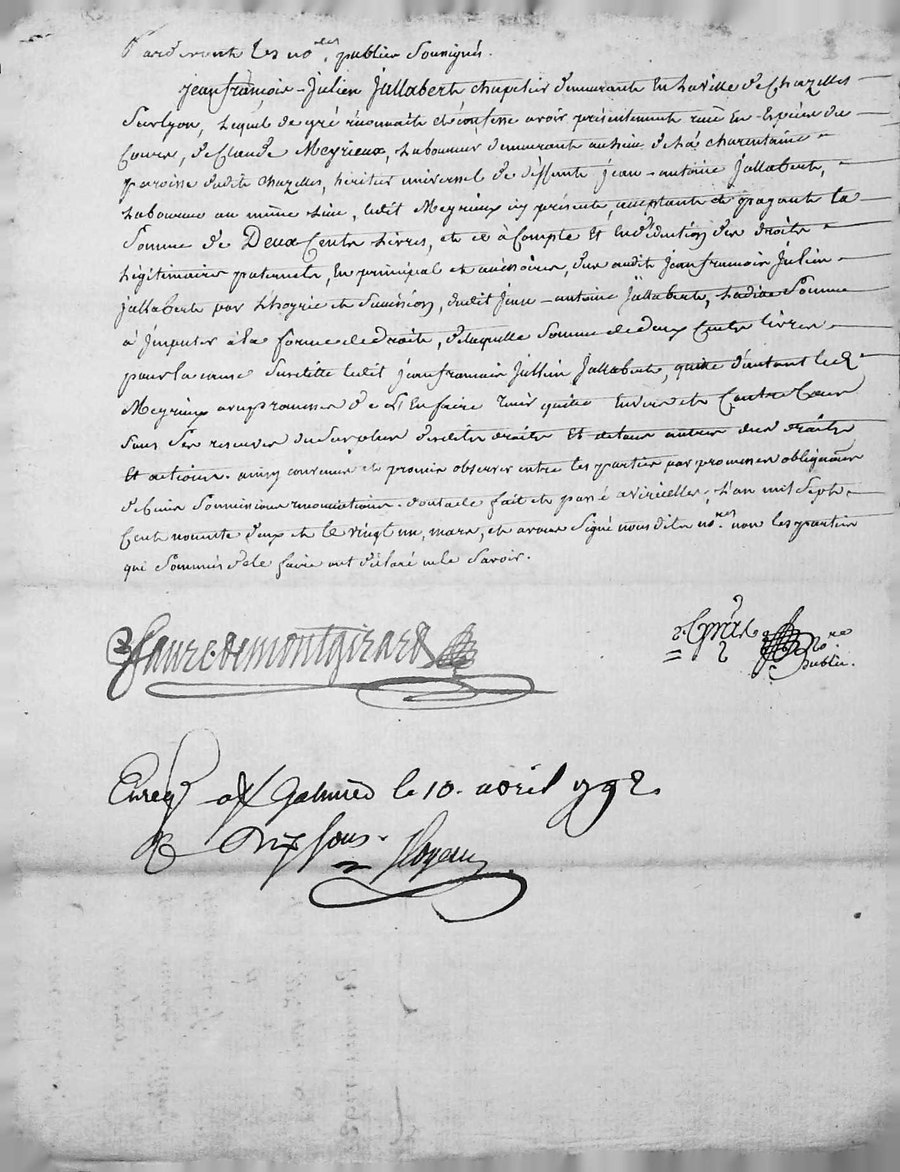 Pardevant les no.res publics soussignés.
jean françois-Julien Jallabert chapelier demeurant En la ville de Chazelles
sur lyon, Lequel de gré reconnait et confesse avoir présentement reçu En Espèces de
Cours, de Claude Meyrieux, Laboureur demeurant au lieu de la charentaine
paroisse dudit chazelles, héritier universel de deffunt jean-antoine Jallabert,
Laboureur au même Lieu, ledit Meyrieux icy présent, acceptant et payant la
Somme de Deux Cents Livres, et ce à Compte Et En déduction des droits
Légitimaires paternels, En principal et accéssoires, dus audit jean francois Julien
jallabert par L'hoyrie et Succession, dudit jean-antoine jallabert, Ladite Somme
à jmputer à la forme de droit, de laquelle Somme de deux Cents livres
pour la cause Susditte ledit jean francois Jullien Jallabert, quitte d'autant led.
Meyrieux avec promesse de L'En faire tenir quitte Envers et Contre tous
sous Ses reserves du Surplus desdits droits Et de tous autres dus droits
Et actions. ainsy convenu et promis observer entre les parties par promesses obligations
de biens Soumissions renonciations. dont acte fait et passé a viricelles, L'an mil Sept
Cent nonente deux et le vingt un mars, et avons Signé nous dits no.res non les parties
qui Sommés de le faire ont déclaré ne le Savoir.
faure-demontgirard
no.re public.
Enreg a St Galmier le 10. avril 1792.
R dix sous.